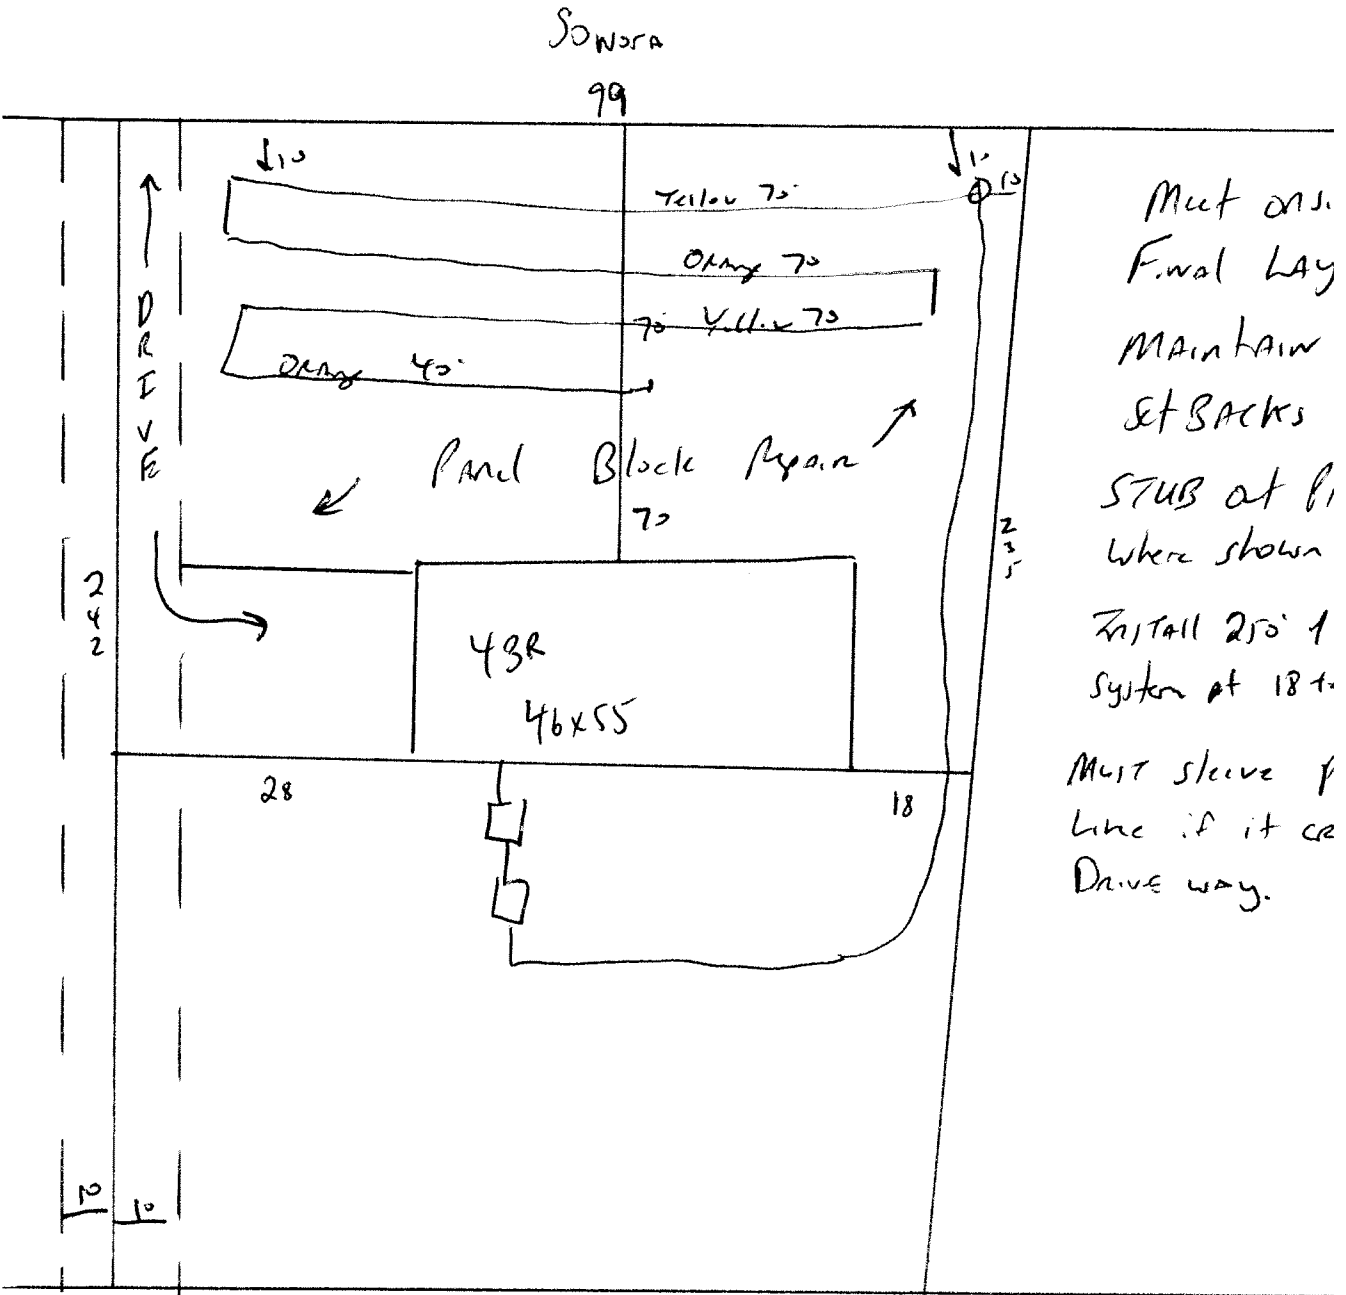 Sonora
99
10
10
10
Yellow 70'
Orange 70
70 Yellow 70
Orange 40'
DRIVE
Panel Block Repair
70
242
235
43R
46x55
28
18
10
10
Meet onsi
Final LAy
MAintAin
SetBACKS
STUB at Pl
where shown
InsTAll 250' f
System at 18 to
MusT sleeve p
Line if it cr
Drive way.